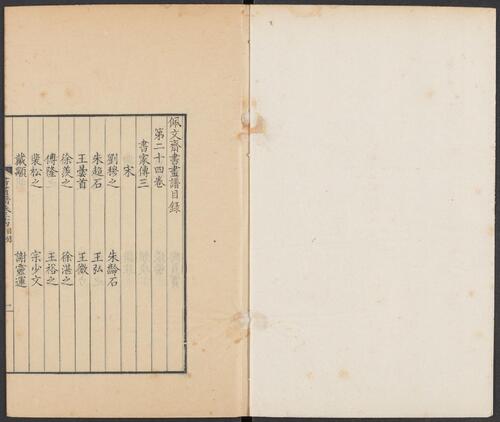 佩文齋書畫譜目錄
第二十四卷
書家傳三
宋
劉穆之 朱齡石
朱超石 王弘
王曇首 王微
徐羨之 徐湛之
傅隆 王裕之
裴松之 宗少文
戴顒 謝靈運